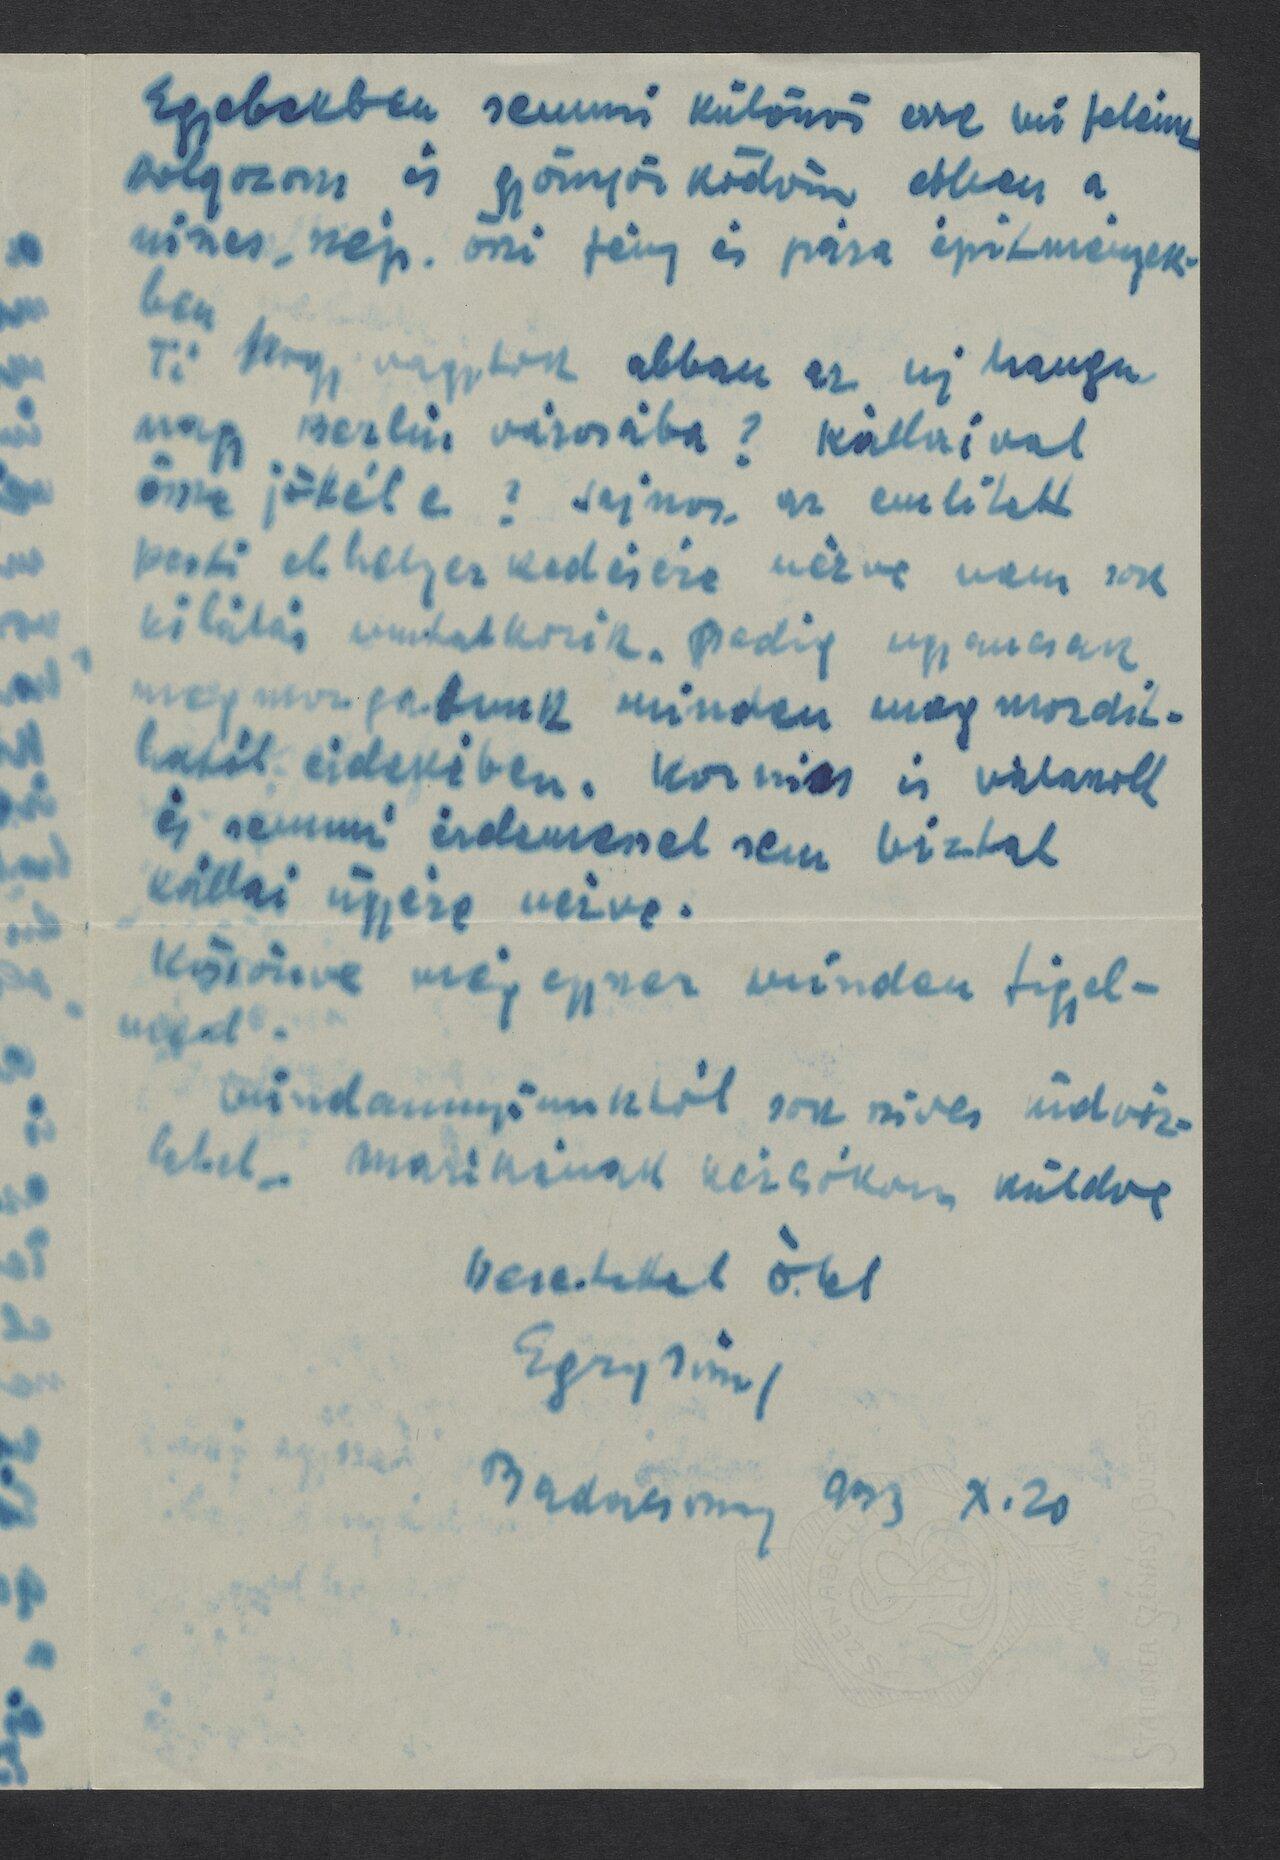 Egyebekben semmi különös erre mi felénk
Dolgozom és gyönyörködöm ebben a
szép. őszi fény és pára épitmények-
ben
Ti hogy vagytok abban az uj hangu
nagy Berlin városába? Kállaival
össze jöttél e? Sajnos az emlitett
pesti elhelyezkedésére nézve nem sok
kilátás mutatkozik. Pedig ugyancsak
megmozgattunk minden meg mozdit-
hatót érdekében. Kornis is válaszolt
és semmi érdemessel sem biztat
Kállai ügyére nézve.
Köszönve még egyszer minden figyel-
med.
Mindannyiunktól sok szives üdvöz-
letet. Marikának kézcsókom küldve
baráttal ölel
Egry József
Badacsony 933 X. 20
SZENABELLA
STATIONER SZÉNÁSY BUDAPEST